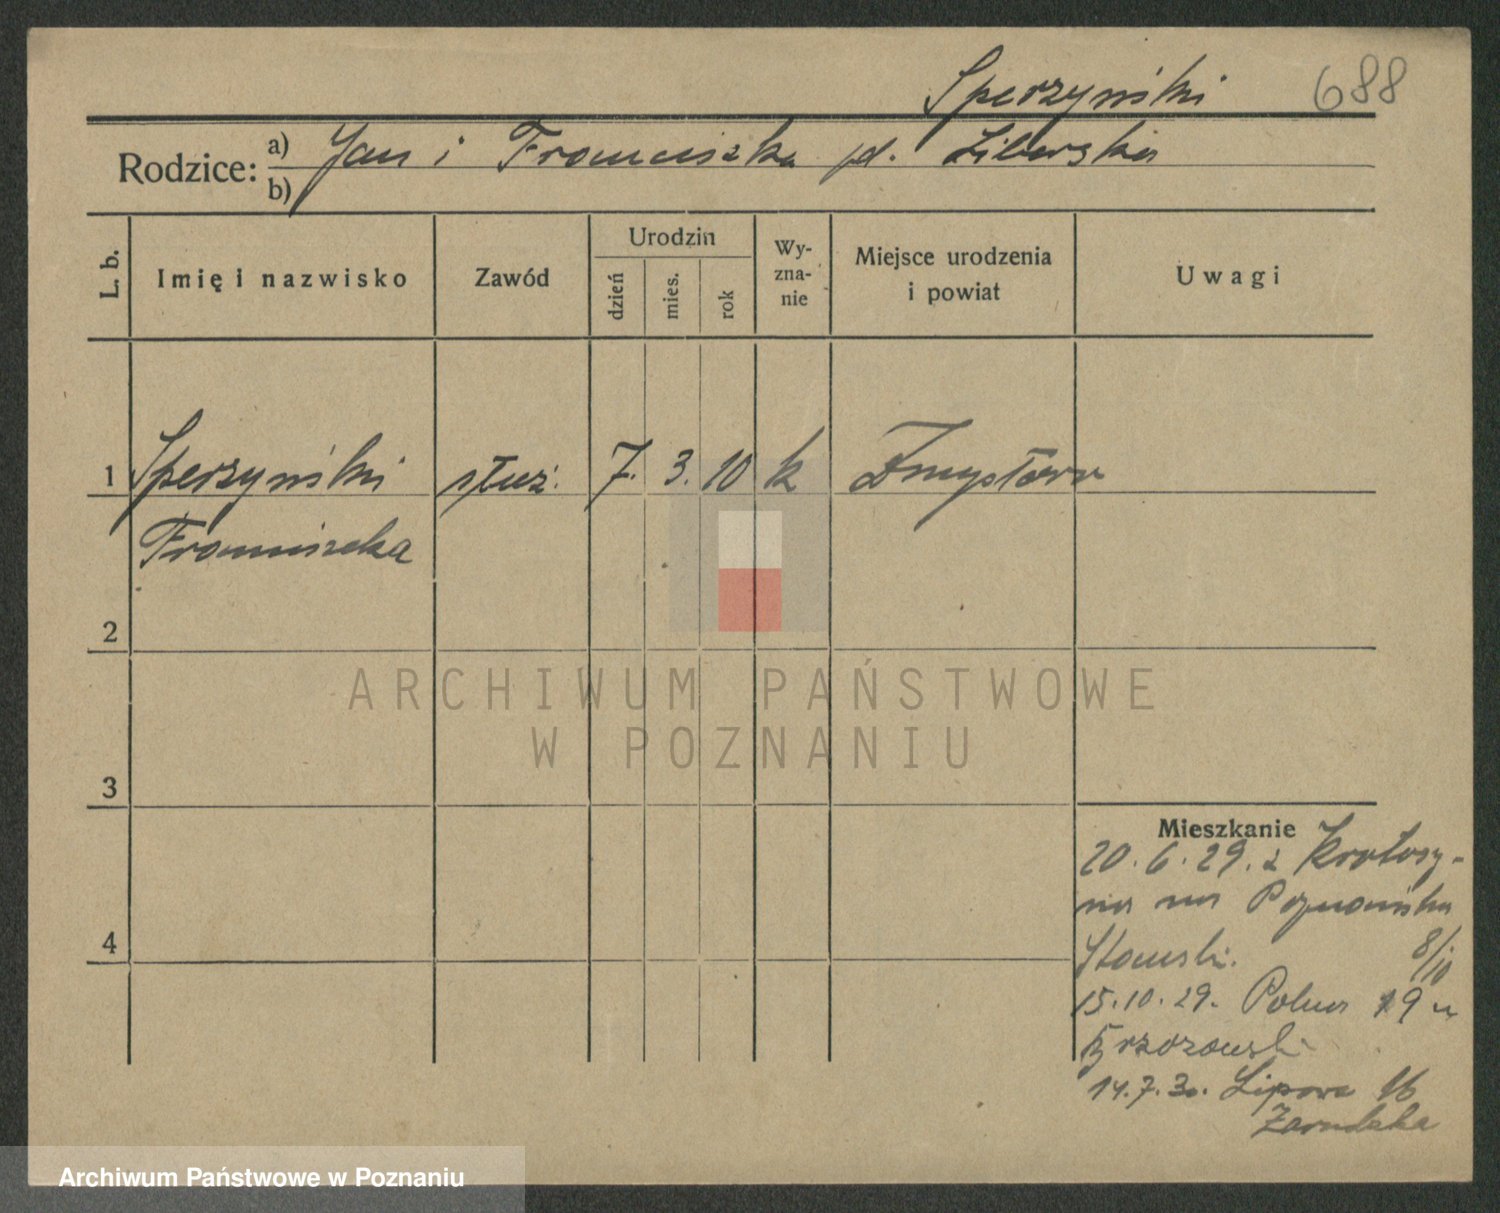 Sperzyński 688
Rodzice: a) Jan i Franciszka d. Liberska
b)
L. b.
Imię i nazwisko
Zawód
Urodzin
dzień
mies.
rok
Wy-
zna-
nie
Miejsce urodzenia
i powiat
Uwagi
1 Sperzyński służ. 7. 3. 10 k Zmysłowo
Franciszka
2
ARCHIWUM PAŃSTWOWE
W POZNANIU
3
Mieszkanie
20.6.29. z Krotoszy-
na na Poznańska
8/10
15.10.29. Polna 19 u
Brzozowski
14.7.30. Lipowa 16
Archiwum Państwowe w Poznaniu